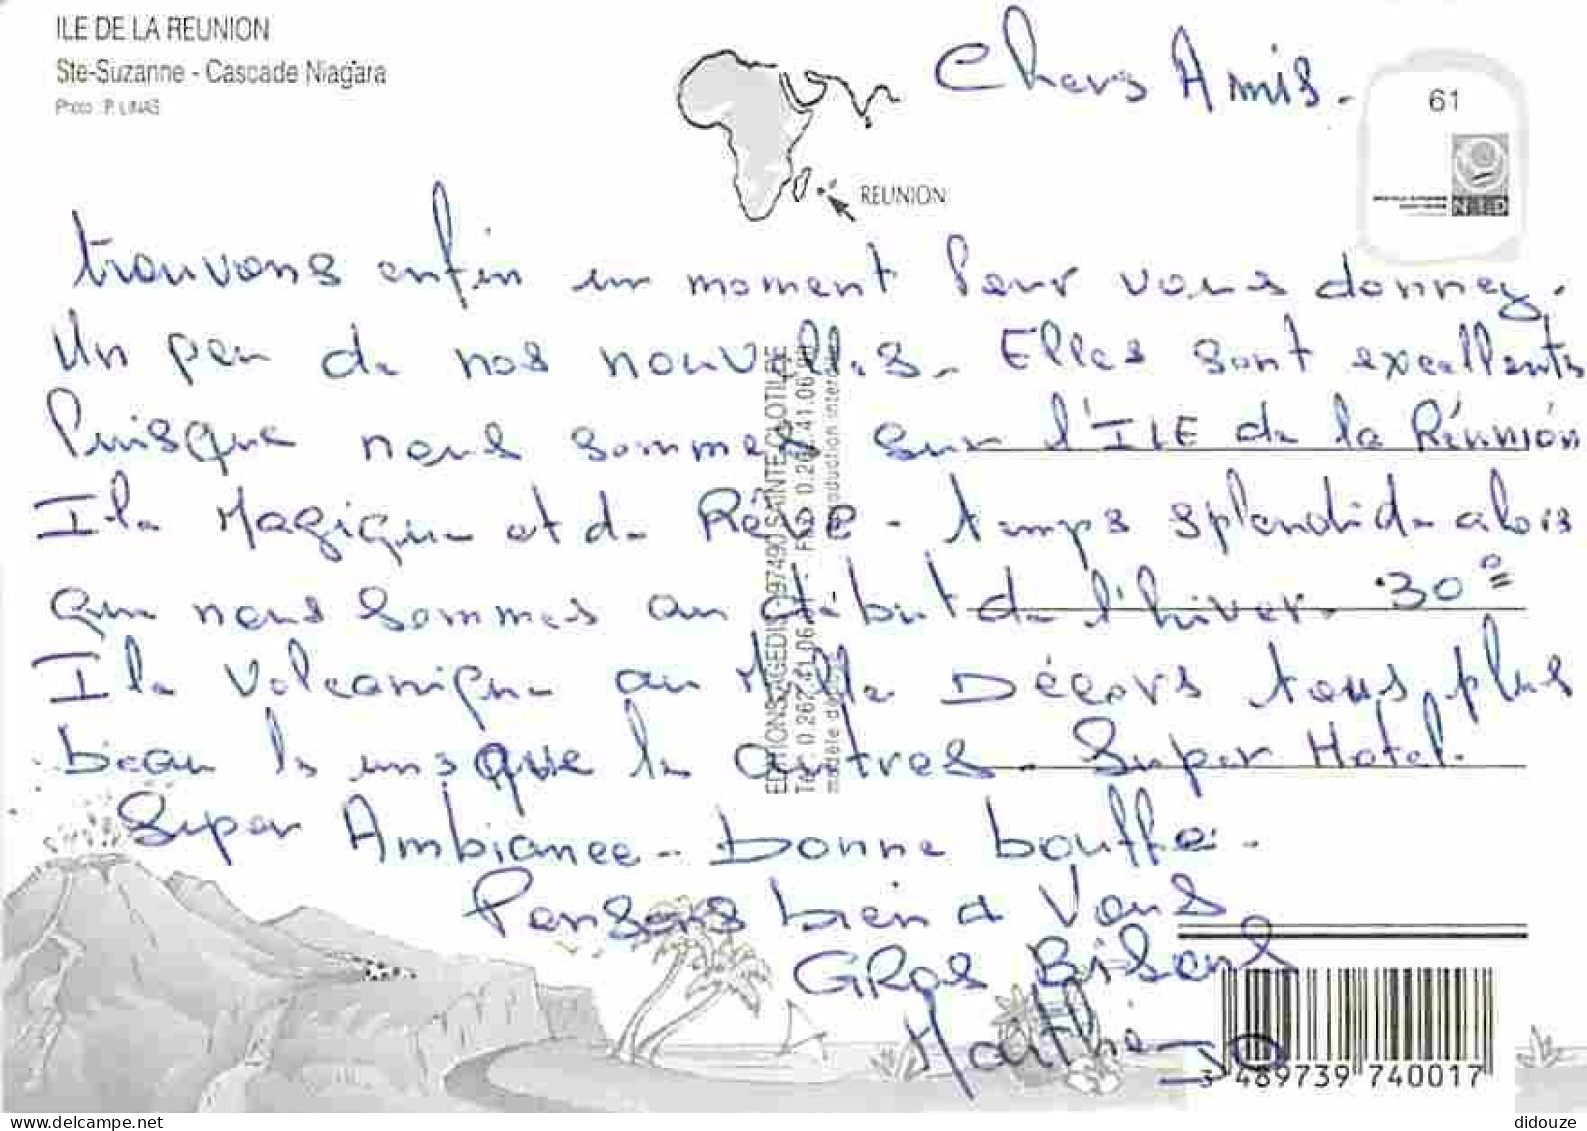 ILE DE LA REUNION
Ste-Suzanne - Cascade Niagara
Photo : P. LINAS
REUNION
61
Chers Amis.
trouvons enfin un moment Pour vous donney.
Un peu de nos nouvelles. Elles sont excellents
Puisque nous sommes sur l'ILE de la Réunion
Ile Magique et de Rêve - temps splendide alors
que nous sommes au début de l'hiver. 30°
Ile Volcanique au Mille Décors tous plus
beau les uns que les autres - Super Hotel.
Super Ambiance - bonne bouffe -
Pensons bien a Vous
GRos Bisous
Mathie JO
EDITIONS AGEDIS 97490 SAINTE CLOTILDE
3 489739 740017
delcampe.net
didouze